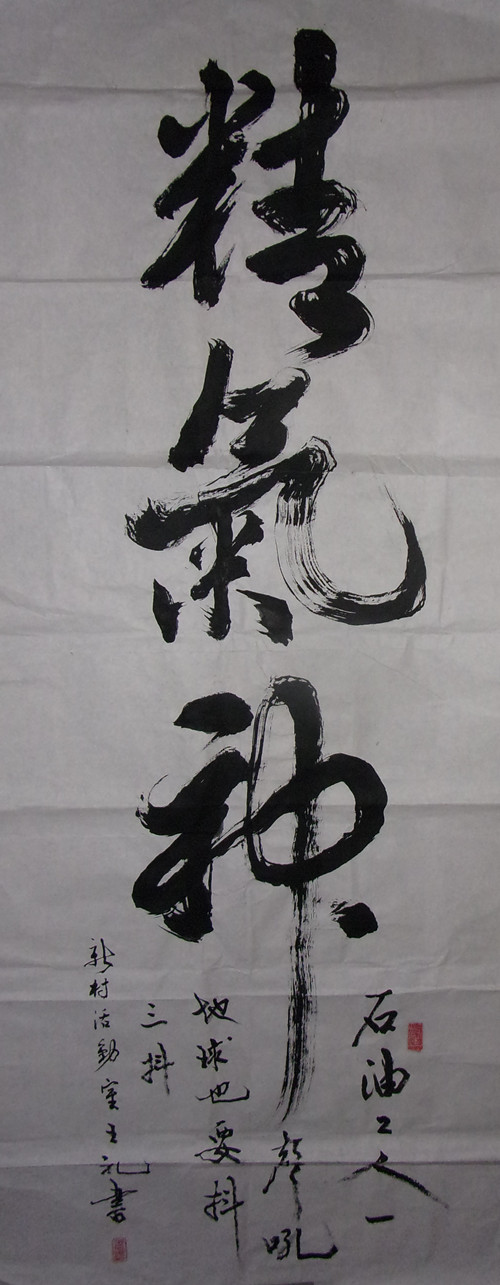 精氣神
石油工人一
聲吼
地球也要抖
三抖
新村活動室王礼書